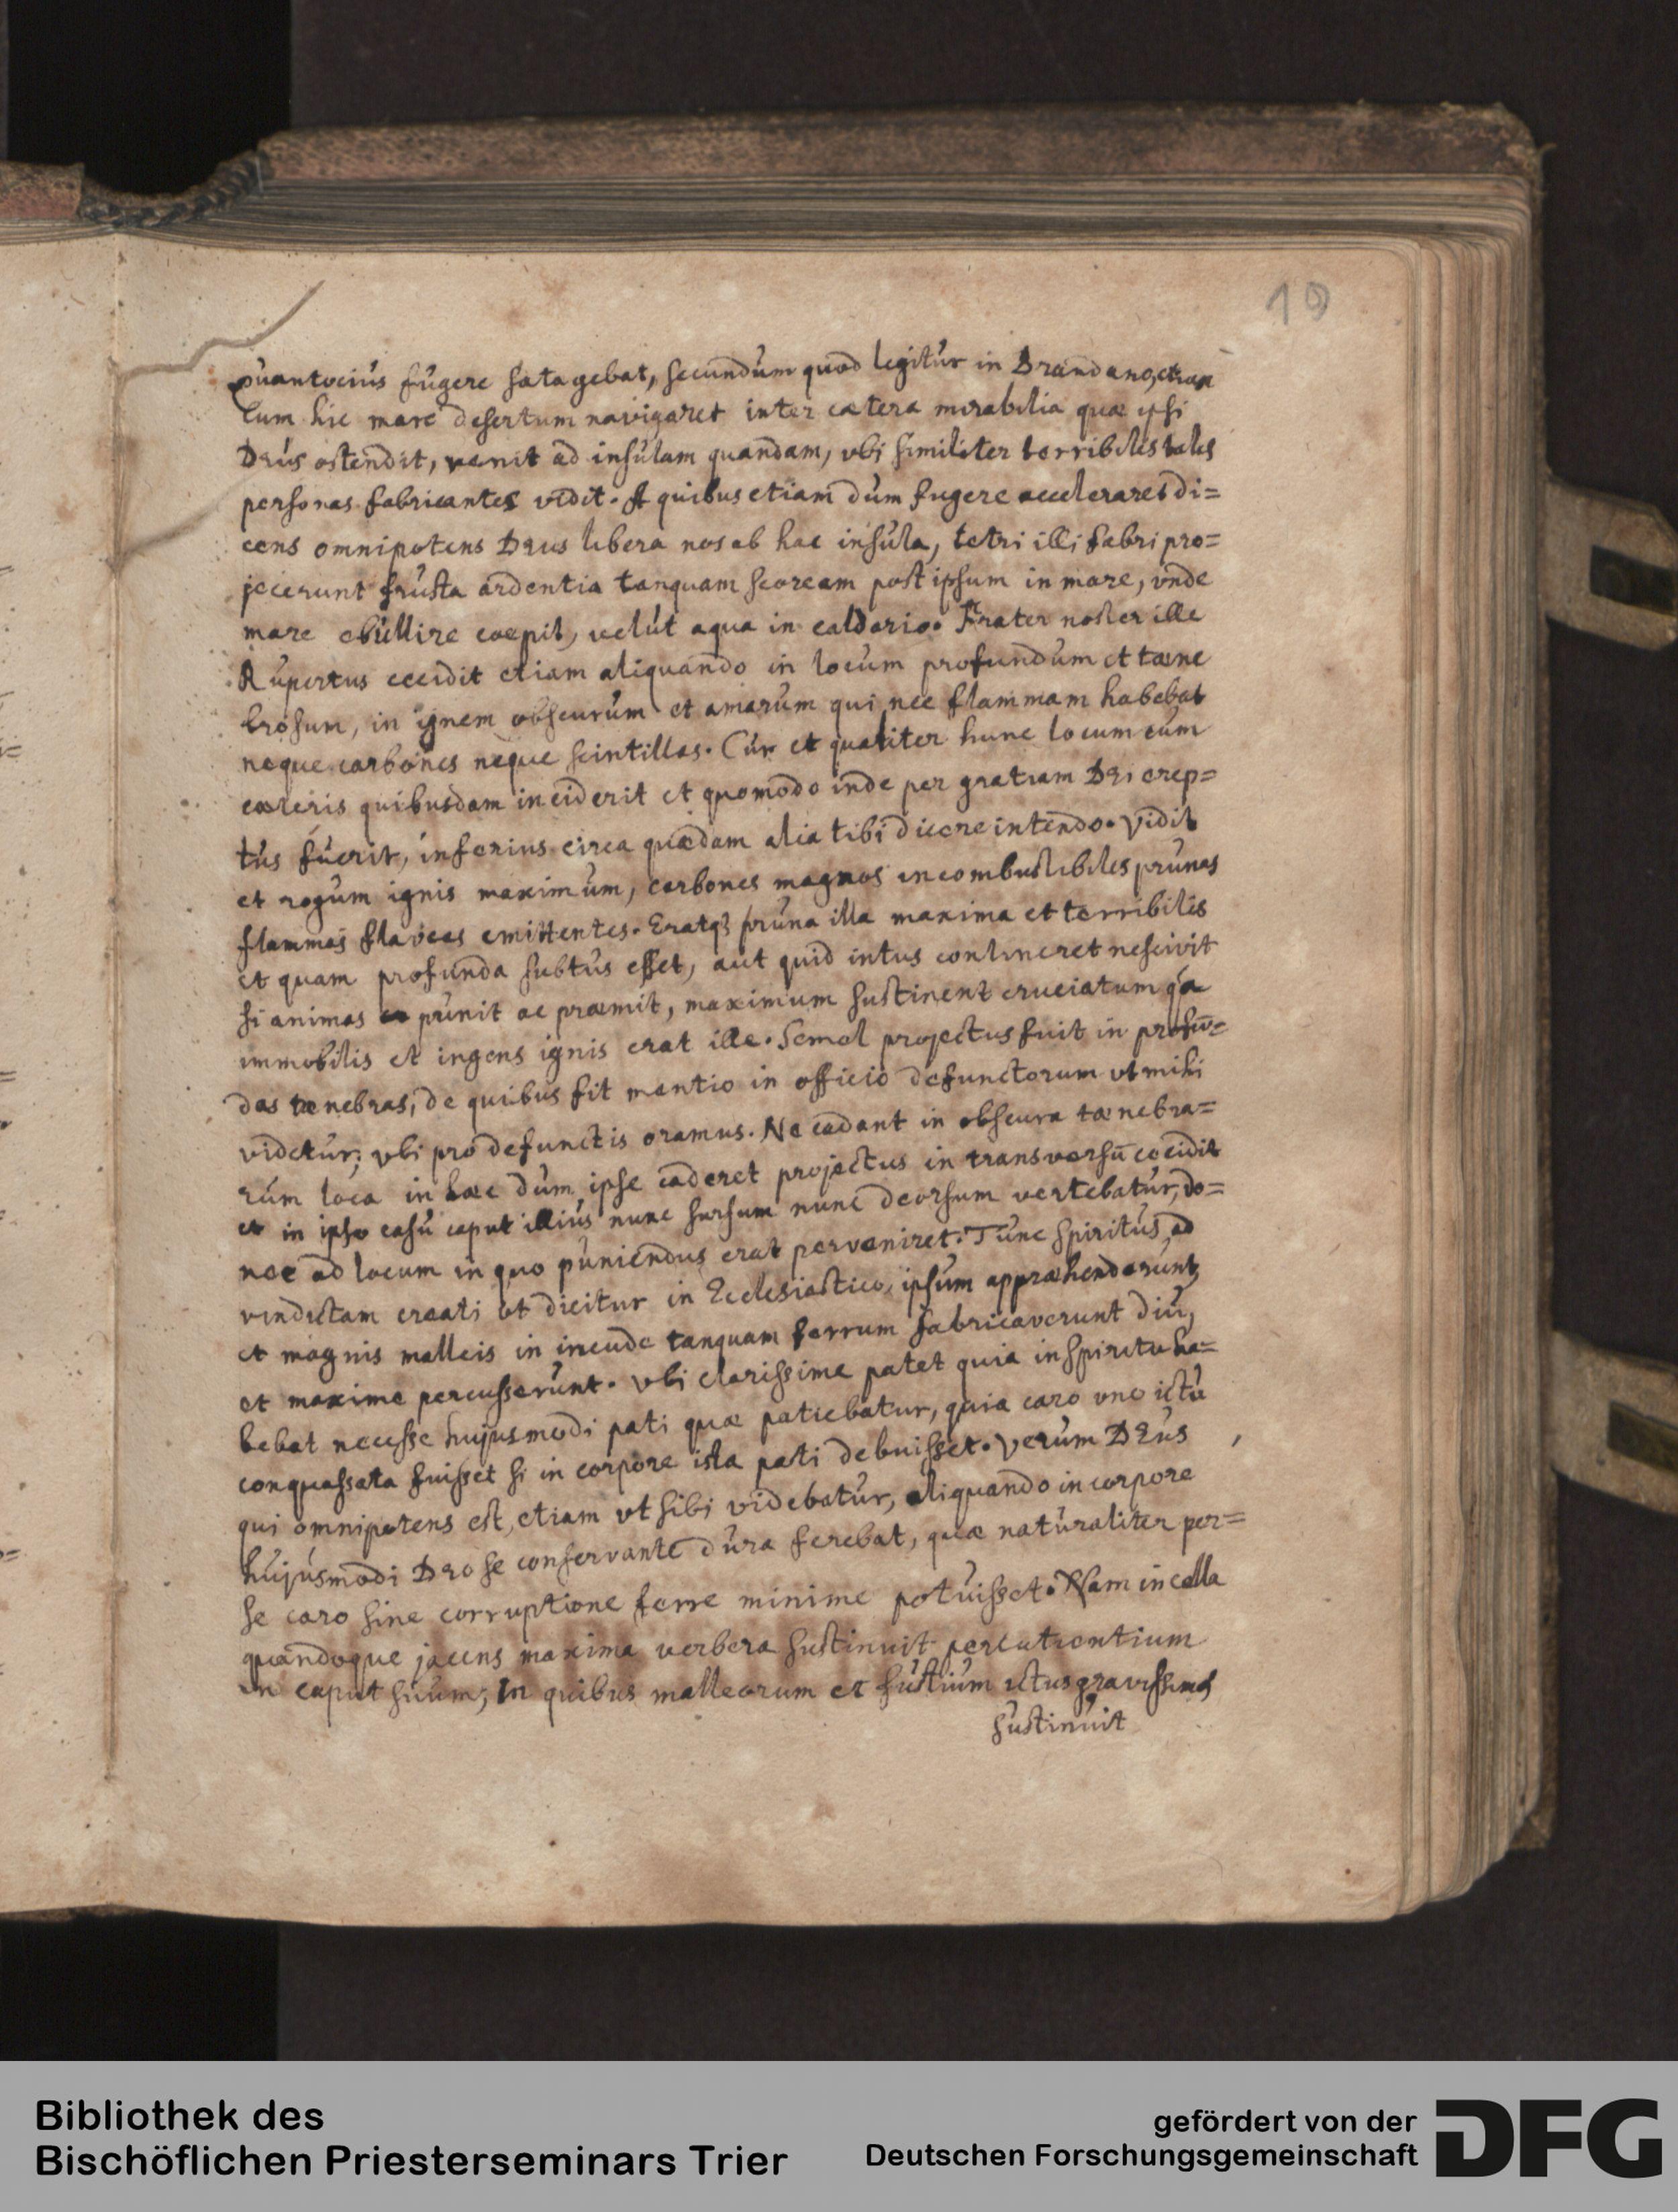 19
quantocius fugere satagebat, secundum quod legitur in Brandano, etiam
Cum hic mare desertum navigaret inter cætera mirabilia quæ ipsi
DEus ostendit, venit ad insulam quandam, vbi similiter terribiles tales
personas fabricantes vidit. A quibus etiam dum fugere acceleraret di=
cens omnipotens DEus libera nos ab hac insula, tetri illi fabri pro=
jecerunt frusta ardentia tanquam scoream post ipsum in mare, vnde
mare ebullire coepit, velut aqua in caldario. Frater noster ille
Rupertus cecidit etiam aliquando in locum profundum et tæne
brosum, in ignem obscurum et amarum qui nec flammam habebat
neque carbones neque scintillas. Cur et qualiter hunc locum cum
cæteris quibusdam inciderit et quomodo inde per gratiam DEi erep=
tus fuerit, inferius circa quædam alia tibi dicere intendo. Vidit
et rogum ignis maximum, carbones magnos incombustibiles prunas
flammas flaveas emittentes. Eratqȝ pruna illa maxima et terribilis
et quam profunda subtus esset, aut quid intus contineret nescivit
si animas punit ac præmit, maximum sustinent cruciatum qa
immobilis et ingens ignis erat ille. Semel projectus fuit in profū=
das tænebras, de quibus fit mentio in officio defunctorum vt mihi
videtur; vbi pro defunctis oramus. Ne cadant in obscura tænebra=
rum loca in hæc dum ipse caderet projectus in transversū cecidit
et in ipso casu caput illius nunc sursum nunc deorsum vertebatur, do=
nec ad locum in quo puniendus erat perveniret. Tunc spiritus ad
vindictam creati vt dicitur in Ecclesiastico, ipsum appræhenderunt,
et magnis malleis in incude tanquam ferrum fabricaverunt diu,
et maxime percusserunt. vbi clarissime patet quia in spiritu ha=
bebat necesse hujusmodi pati quæ patiebatur, quia caro vno ictu
conquassata fuisset si in corpore ista pati debuisset. Verum DEus
qui omnipotens est, etiam vt sibi videbatur, aliquando in corpore
hujusmodi DEo se conservante dura ferebat, quæ naturaliter per=
se caro sine corruptione ferre minime potuisset. Nam in cella
quandoque jacens maxima verbera sustinuit percutientium
in caput suum; In quibus malleorum et fustium ictus gravissimos
sustinuit
Bibliothek des
Bischöflichen Priesterseminars Trier
gefördert von der
Deutschen Forschungsgemeinschaft
DFG